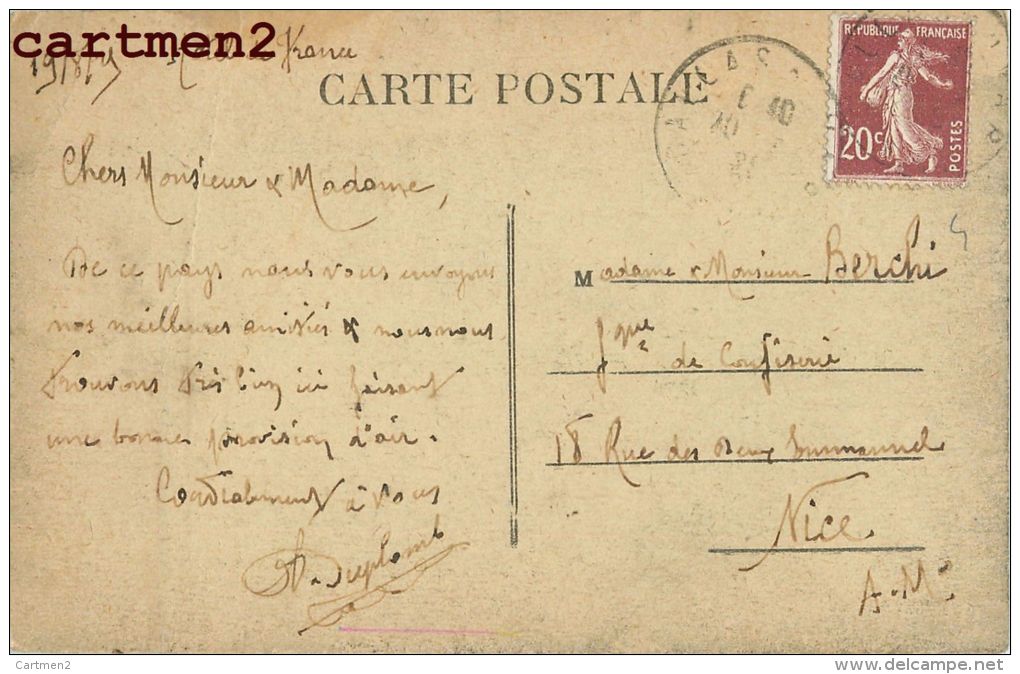 cartmen2
Hôtel de France
CARTE POSTALE
REPUBLIQUE FRANÇAISE
20c
POSTES
Chers Monsieur & Madame,
De ce pays nous vous envoyons
nos meilleures amitiés & nous nous
trouvons très bien ici faisant
une bonne provision d'air.
Cordialement à vous
A. Duplomb
Madame & Monsieur Berchi
fque de Confiserie
18 Rue des Deux Emmanuel
Nice
A.M.
Cartmen2
www.delcampe.net